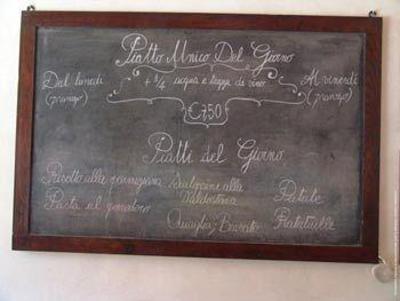 Piatto Unico Del Giorno
Dal lunedi
(pranzo)
+ 1/4 acqua e tazza di vino
Al vinerdi
(pranzo)
€ 7.50
Piatti del Giorno
Risotto alla
Scaloppine alla
Valdostana
Patate
Pasta al pomodoro
Quaglia Brasato
Ratatuille